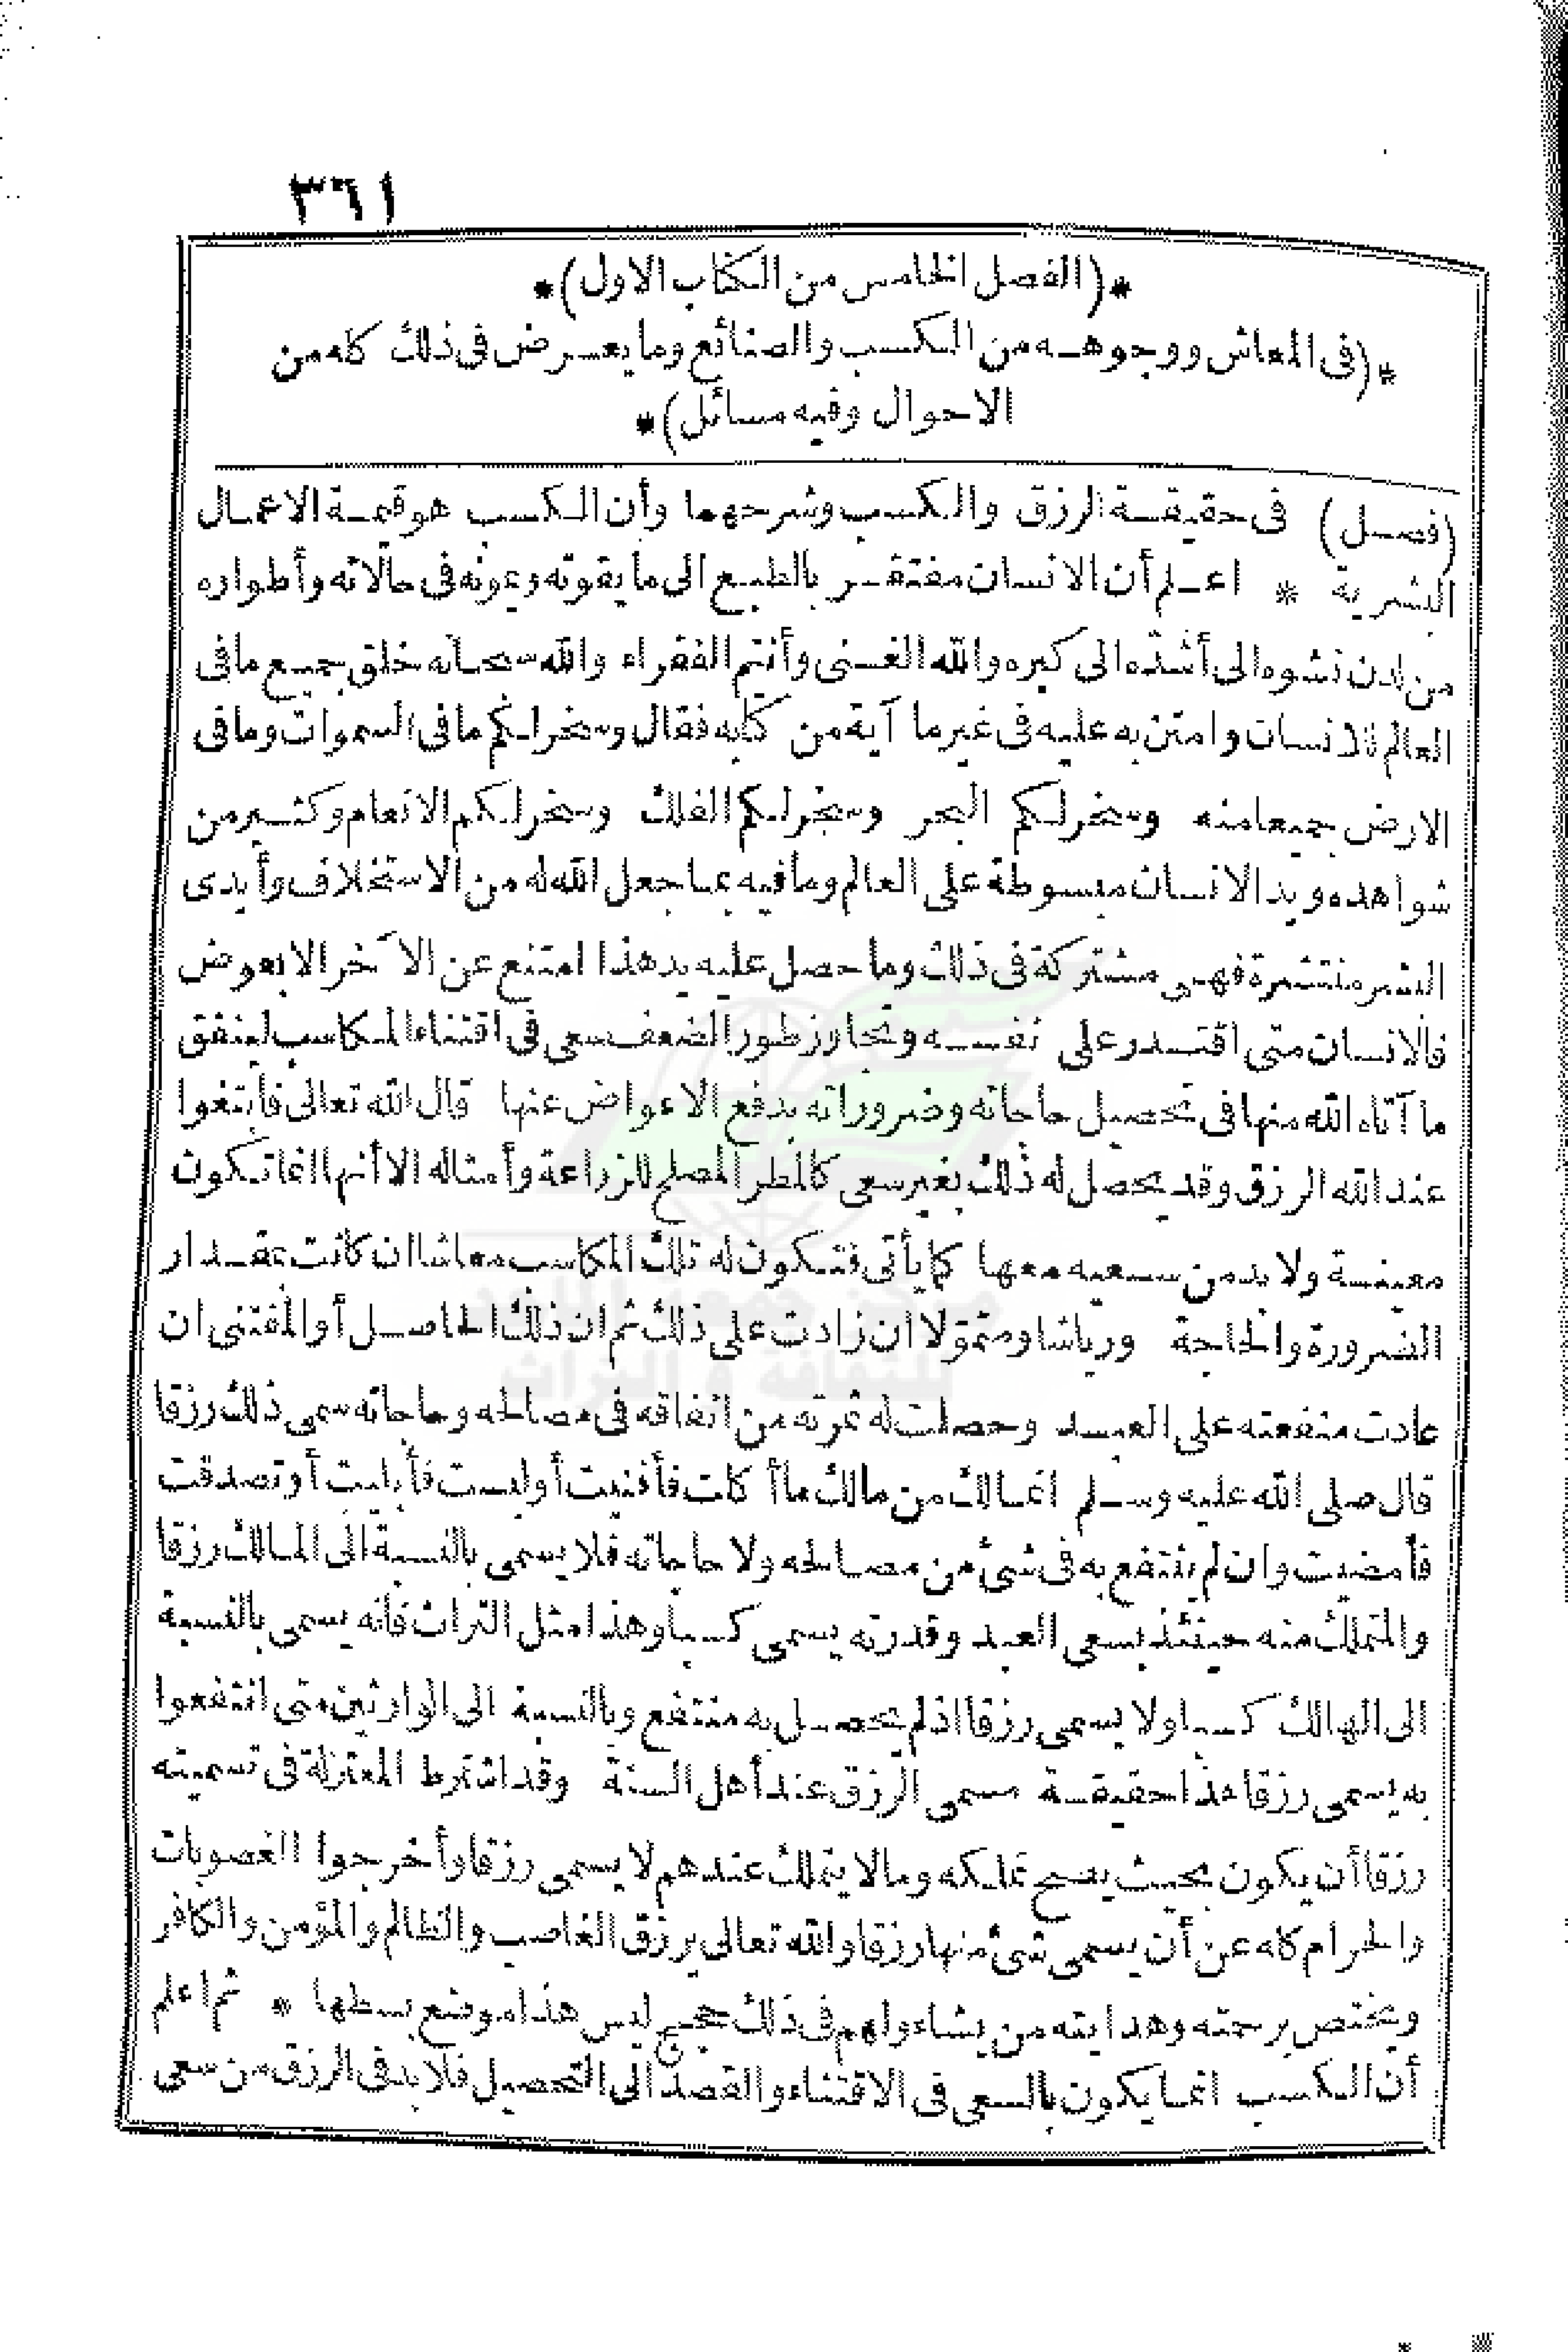 ٣٦١
*(الفصل الخامس من الكتاب الاول)*
*(فى المعاش ووجوهه من الكسب والصنائع وما يعرض فى ذلك كله من
الاحوال وفيه مسائل)*
(فصل) فى حقيقة الرزق والكسب وشرحهما وأن الكسب هو قيمة الاعمال
البشرية * اعلم أن الانسان مفتقر بالطبع الى ما يقوته ويمونه فى حالاته وأطواره
من لدن نشوه الى أشدّه الى كبره والله الغنى وأنتم الفقراء والله سبحانه خلق جميع ما فى
العالم للانسان وامتن به عليه فى غير ما آية من كتابه فقال وسخر لكم ما فى السموات وما فى
الارض جميعا منه وسخر لكم البحر وسخر لكم الفلك وسخر لكم الانعام وكثير من
شواهده ويد الانسان مبسوطة على العالم وما فيه بما جعل الله له من الاستخلاف وأيدى
البشر منتشرة فهى مشتركة فى ذلك وما حصل عليه يد هذا امتنع عن الآخر الا بعوض
فالانسان متى اقتدر على نفسه وتجاوز طور الضعف سعى فى اقتناء المكاسب لينفق
ما آتاه الله منها فى تحصيل حاجاته وضروراته بدفع الاعواض عنها قال الله تعالى فابتغوا
عند الله الرزق وقد يحصل له ذلك بغير سعى كالمطر المصلح للزراعة وأمثاله الا أنها انما تكون
معينة ولا بد من سعيه معها كما يأتى فتكون له تلك المكاسب معاشا ان كانت بمقدار
الضرورة والحاجة ورياشا ومتموّلا ان زادت على ذلك ثم ان ذلك الحاصل أو المقتنى ان
عادت منفعته على العبد وحصلت له ثمرته من انفاقه فى مصالحه وحاجاته سمى ذلك رزقا
قال صلى الله عليه وسلم انما لك من مالك ما أكلت فأفنيت أو لبست فأبليت أو تصدقت
فأمضيت وان لم ينتفع به فى شئ من مصالحه ولا حاجاته فلا يسمى بالنسبة الى المالك رزقا
والمتملك منه حينئذ بسعى العبد وقدرته يسمى كسبا وهذا مثل التراث فانه يسمى بالنسبة
الى الهالك كسبا ولا يسمى رزقا اذ لم يحصل به منتفع وبالنسبة الى الوارثين متى انتفعوا
به يسمى رزقا هذا حقيقة مسمى الرزق عند أهل السنة وقد اشترط المعتزلة فى تسميته
رزقا أن يكون بحيث يصح تملكه وما لا يتملك عندهم لا يسمى رزقا وأخرجوا الغصوبات
والحرام كله عن أن يسمى شئ منها رزقا والله تعالى يرزق الغاصب والظالم والمؤمن والكافر
ويختص برحمته وهدايته من يشاء ولهم فى ذلك حجج ليس هذا موضع بسطها * ثم اعلم
أن الكسب انما يكون بالسعى فى الاقتناء والقصد الى التحصيل فلا بد فى الرزق من سعى